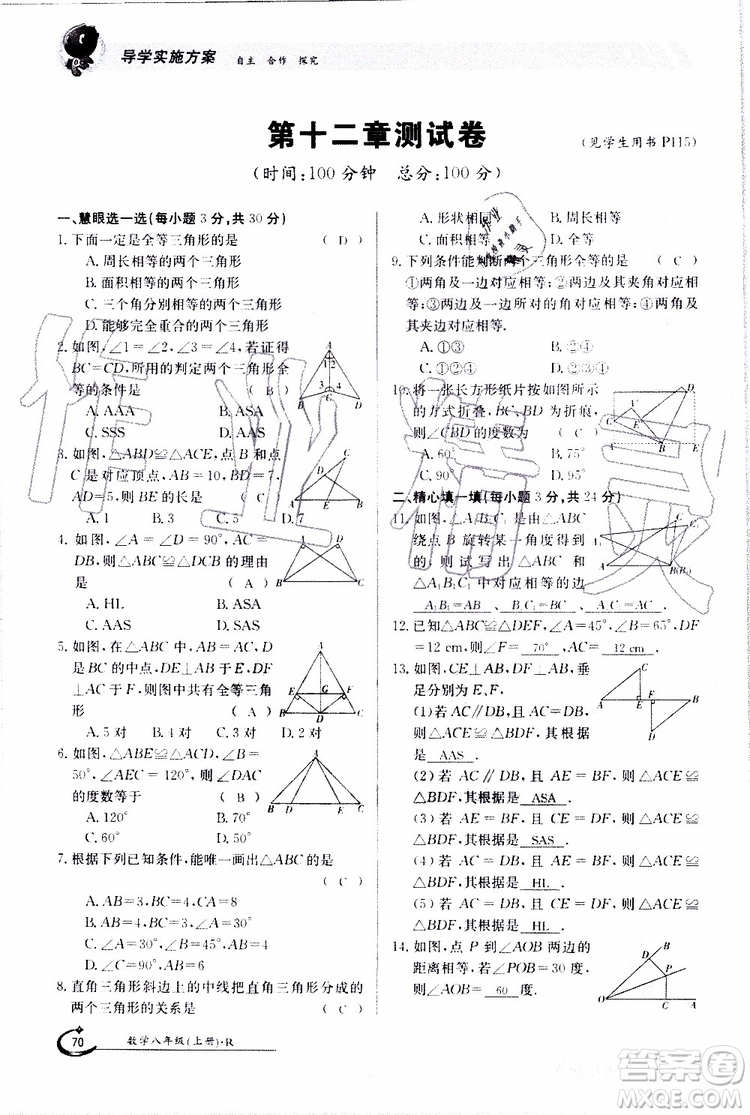 导学实施方案 自主 合作 探究
第十二章测试卷
(见学生用书 P115)
(时间:100 分钟 总分:100 分)
一、慧眼选一选(每小题 3 分,共 30 分)
1. 下面一定是全等三角形的是 ( D )
A. 周长相等的两个三角形
B. 面积相等的两个三角形
C. 三个角分别相等的两个三角形
D. 能够完全重合的两个三角形
2. 如图,∠1=∠2,若证得
BC=CD,所用的判定两个三角形全
等的条件是 ( B )
A. AAA B. ASA
C. SSS D. SSA
3. 如图,△ABD≌△ACE,点 B 和点
C 是对应顶点,AB=10,BD=7,
AD=5,则 BE 的长是 ( C )
A. 1 B. 3 C. 5 D. 7
4. 如图,∠A=∠D=90°,AC=
DB,则△ABC≌△DCB 的理由
是 ( A )
A. HL B. ASA
C. AAS D. SAS
5. 如图,在△ABC 中,AD⊥BC,D
是 BC 的中点,DE⊥AB,DF⊥
AC,连接 EF,则图中的全等三角
形 ( A )
A. 5 对 B. 4 对 C. 3 对 D. 2 对
6. 如图,△ABE≌△ACD,∠B=
50°,∠AEC=120°,则∠DAC
的度数等于 ( B )
A. 120° B. 70°
C. 60° D. 50°
7. 根据下列已知条件,能唯一画出△ABC 的是
( C )
A. AB=3,BC=4,CA=8
B. AB=4,BC=3,∠A=30°
C. ∠A=30°,∠B=45°,AB=4
D. ∠C=90°,AB=6
8. 直角三角形斜边上的中线把直角三角形分成的
两个三角形的关系是 ( C )
A. 形状相同 B. 周长相等
C. 面积相等 D. 全等
9. 下列条件能判断两个三角形全等的是 ( C )
①两角及一边对应相等;②两边及其夹角对应相
等;③两边及一边所对的角对应相等;④两角及
其夹边对应相等.
A. ①③ B. ②④
C. ①②④ D. ②③④
10. 将一张长方形纸片按如图所示
的方式折叠,BC,BD 为折痕,
则∠CBD 的度数为 ( C )
A. 60° B. 75°
C. 90° D. 95°
二、精心填一填(每小题 3 分,共 24 分)
11. 如图,△A₁BC₁ 是由△ABC
绕点 B 旋转某一角度得到
的,则试写出△ABC 和
△A₁BC₁ 中对应相等的边
A₁B=AB、B₁C₁=BC、A₁C₁=AC.
12. 已知△ABC≌△DEF,∠A=45°,∠B=65°,DF
=12 cm,则∠F= 70° ,AC= 12 cm .
13. 如图,CE⊥AB,DF⊥AB,垂
足分别为 E,F,
(1)若 AC∥DB,且 AC=DB,则△ACE≌
△BDF,其根据是 AAS .
(2) 若 AC∥DB, 且 AE=BF, 则△ACE≌
△BDF,其根据是 ASA .
(3) 若 CE=DF, 且 AE=BF, 则△ACE≌
△BDF,其根据是 SAS .
(4) 若 AC=DB, 且 AE=BF, 则△ACE≌
△BDF,其根据是 HL .
(5) 若 AC=DB, 且 CE=DF, 则△ACE≌
△BDF,其根据是 HL .
14. 如图,点 P 到∠AOB 两边的
距离相等,若∠POB=30°,
则∠AOB= 60 度.
70 数学八年级(上册)·R